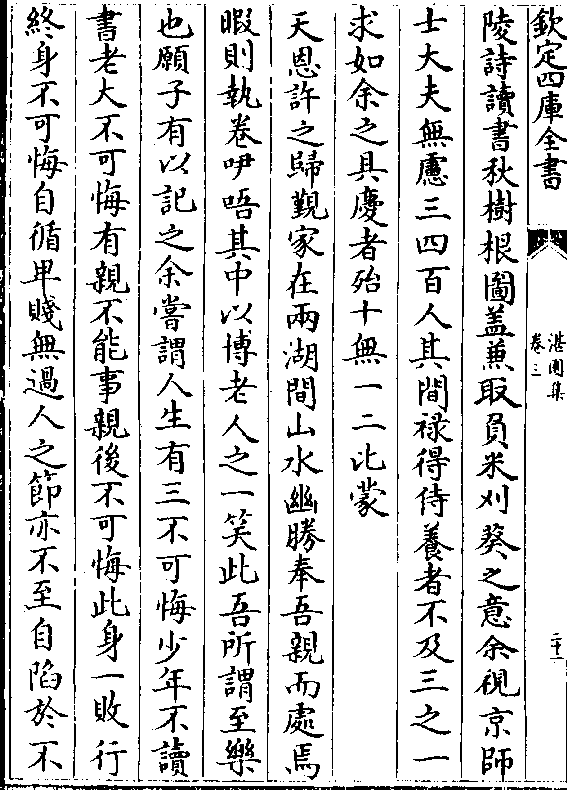 欽定四庫全書
湛園集
卷三
二十一
陵詩讀書秋樹根圖葢兼取負米刈葵之意余視京師
士大夫無慮三四百人其間禄得侍養者不及三之一
求如余之具慶者殆十無一二比蒙
天恩許之歸覲家在兩湖間山水幽勝奉吾親而處焉
暇則執卷吚唔其中以博老人之一笑此吾所謂至樂
也願子有以記之余嘗謂人生有三不可悔少年不讀
書老大不可悔有親不能事親後不可悔此身一敗行
終身不可悔自循卑賤無過人之節亦不至自陷於不